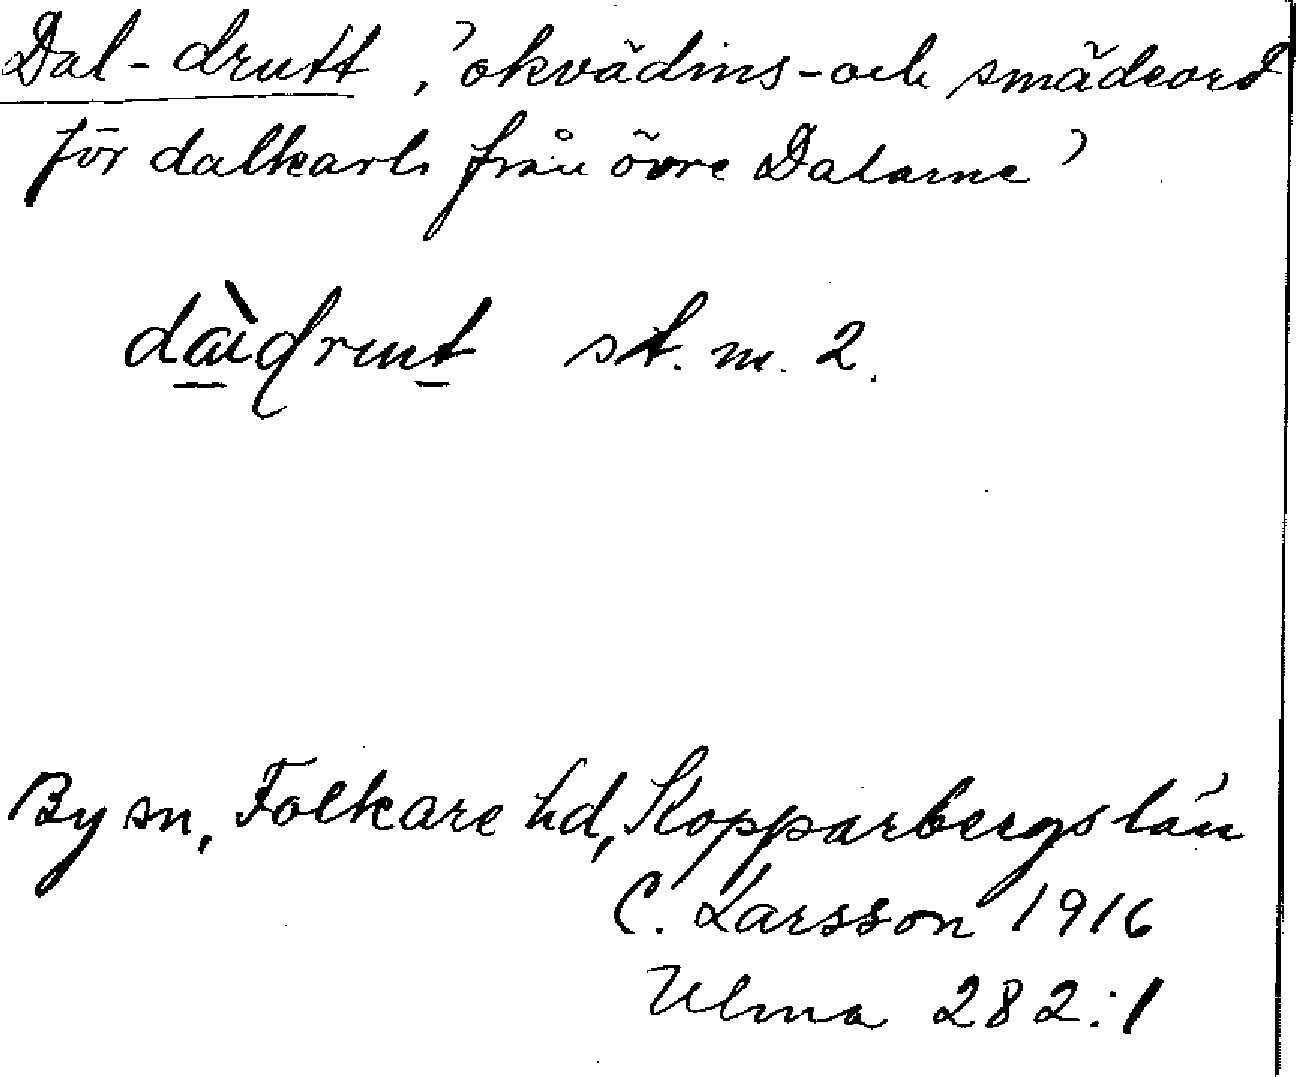 Dal-drutt, 'okvädins- och smädeord
för dalkarl från övre Dalarne'
st. m. 2.
By sn, Folkare hd, Kopparbergs län
C. Larsson 1916
Ulma 282:1